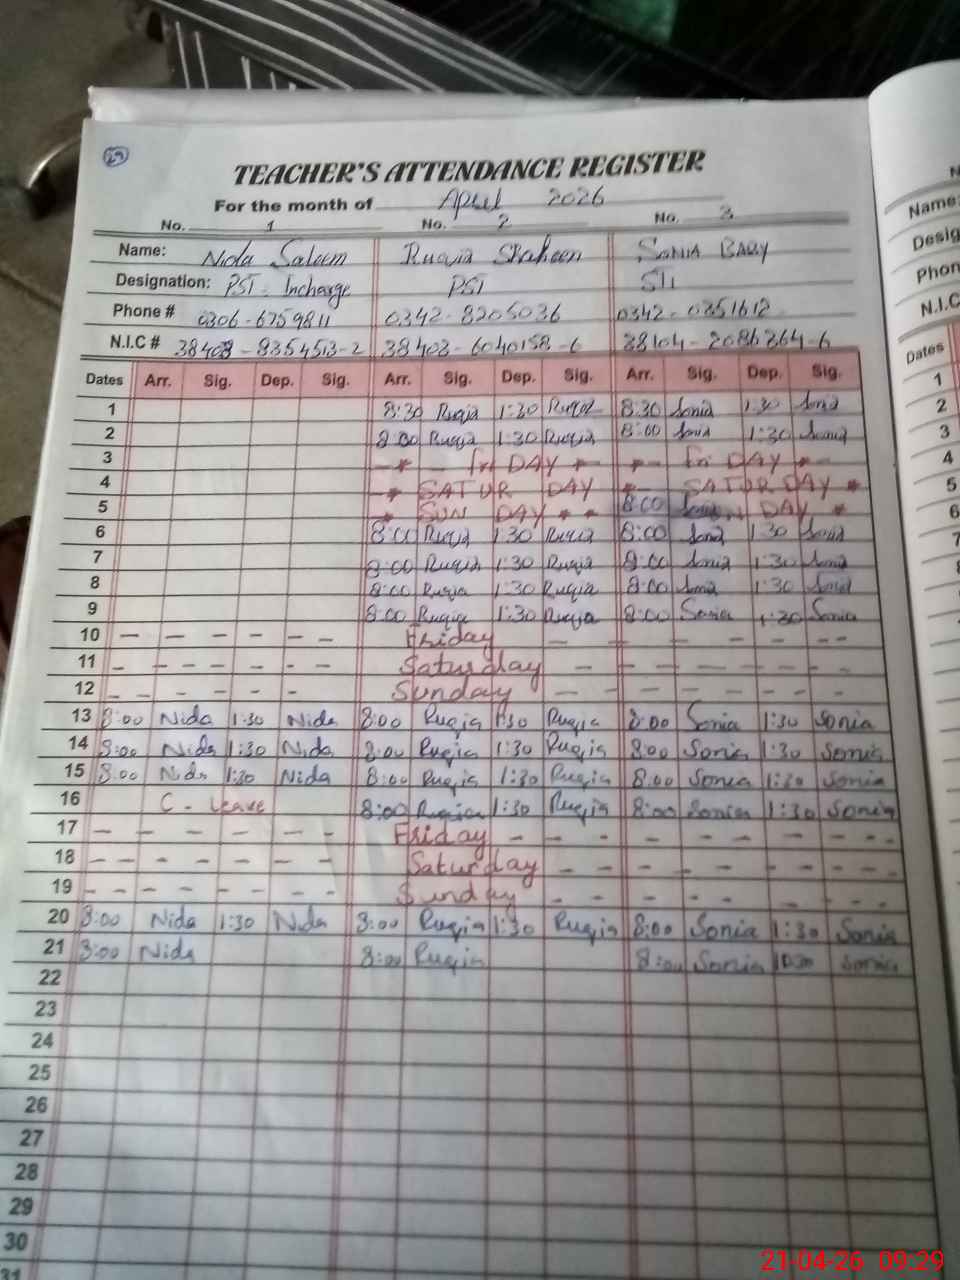 29
TEACHER'S ATTENDANCE REGISTER
For the month of April 2026
No. 1 No. 2 No. 3
Name: Nida Saleem Ruqia Shaheen SONIA BABY
Designation: PST. Incharge PST STI
Phone # 0306-6759811 0342-8205036 0342-0351612
N.I.C # 38403-8354513-2 38403-6040158-6 38104-2086364-6
Dates Arr. Sig. Dep. Sig. Arr. Sig. Dep. Sig. Arr. Sig. Dep. Sig.
1 8:30 Ruqia 1:30 Ruqia 8:30 Sonia 1:30 Sonia
2 8:00 Ruqia 1:30 Ruqia 8:00 Sonia 1:30 Sonia
3 Fri DAY Fri DAY
4 SATUR DAY SATUR DAY
5 SUN DAY 8:00 DAY
6 8:00 Ruqia 1:30 Ruqia 8:00 Sonia 1:30 Sonia
7 8:00 Ruqia 1:30 Ruqia 8:00 Sonia 1:30 Sonia
8 8:00 Ruqia 1:30 Ruqia 8:00 Sonia 1:30 Sonia
9 8:00 Ruqia 1:30 Ruqia 8:00 Sonia 1:30 Sonia
10 Friday
11 Saturday
12 Sunday
13 8:00 Nida 1:30 Nida 8:00 Ruqia 1:30 Ruqia 8:00 Sonia 1:30 Sonia
14 8:00 Nida 1:30 Nida 8:00 Ruqia 1:30 Ruqia 8:00 Sonia 1:30 Sonia
15 8:00 Nida 1:30 Nida 8:00 Ruqia 1:30 Ruqia 8:00 Sonia 1:30 Sonia
16 C - Leave 8:00 Ruqia 1:30 Ruqia 8:00 Sonia 1:30 Sonia
17 Friday
18 Saturday
19 Sunday
20 8:00 Nida 1:30 Nida 8:00 Ruqia 1:30 Ruqia 8:00 Sonia 1:30 Sonia
21 8:00 Nida 8:00 Ruqia 8:00 Sonia Sonia
22
23
24
25
26
27
28
29
30
31
Name:
Dates
1
2
3
4
5
6
21-04-26 09:29